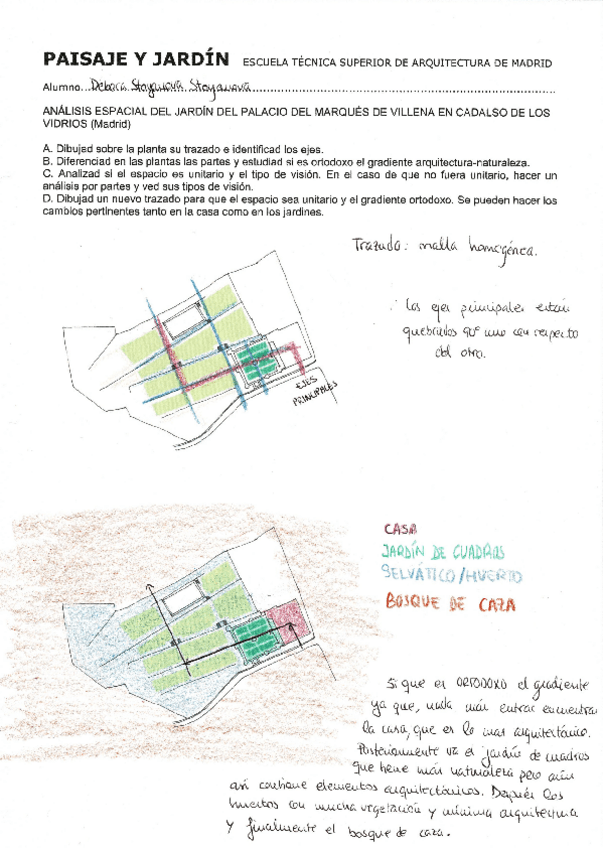 PAISAJE Y JARDÍN ESCUELA TÉCNICA SUPERIOR DE ARQUITECTURA DE MADRID
Alumno...Débora Stoyanova Stoyanova...
ANÁLISIS ESPACIAL DEL JARDÍN DEL PALACIO DEL MARQUÉS DE VILLENA EN CADALSO DE LOS
VIDRIOS (Madrid)
A. Dibujad sobre la planta su trazado e identificad los ejes.
B. Diferenciad en las plantas las partes y estudiad si es ortodoxo el gradiente arquitectura-naturaleza.
C. Analizad si el espacio es unitario y el tipo de visión. En el caso de que no fuera unitario, hacer un
análisis por partes y ved sus tipos de visión.
D. Dibujad un nuevo trazado para que el espacio sea unitario y el gradiente ortodoxo. Se pueden hacer los
cambios pertinentes tanto en la casa como en los jardines.
Trazado: malla homogénea.
Los ejes principales están
quebrados 90º uno con respecto
del otro.
EJES
PRINCIPALES
CASA
JARDÍN DE CUADROS
SELVÁTICO/HUERTO
BOSQUE DE CAZA
Si que es ORTODOXO el gradiente
ya que, nada más entrar encuentra
la casa, que es lo mas arquitectónico.
Posteriormente va el jardín de cuadros
que tiene más naturaleza pero aún
así contiene elementos arquitectónicos. Después los
huertos con mucha vegetación y mínima arquitectura
y finalmente el bosque de caza.